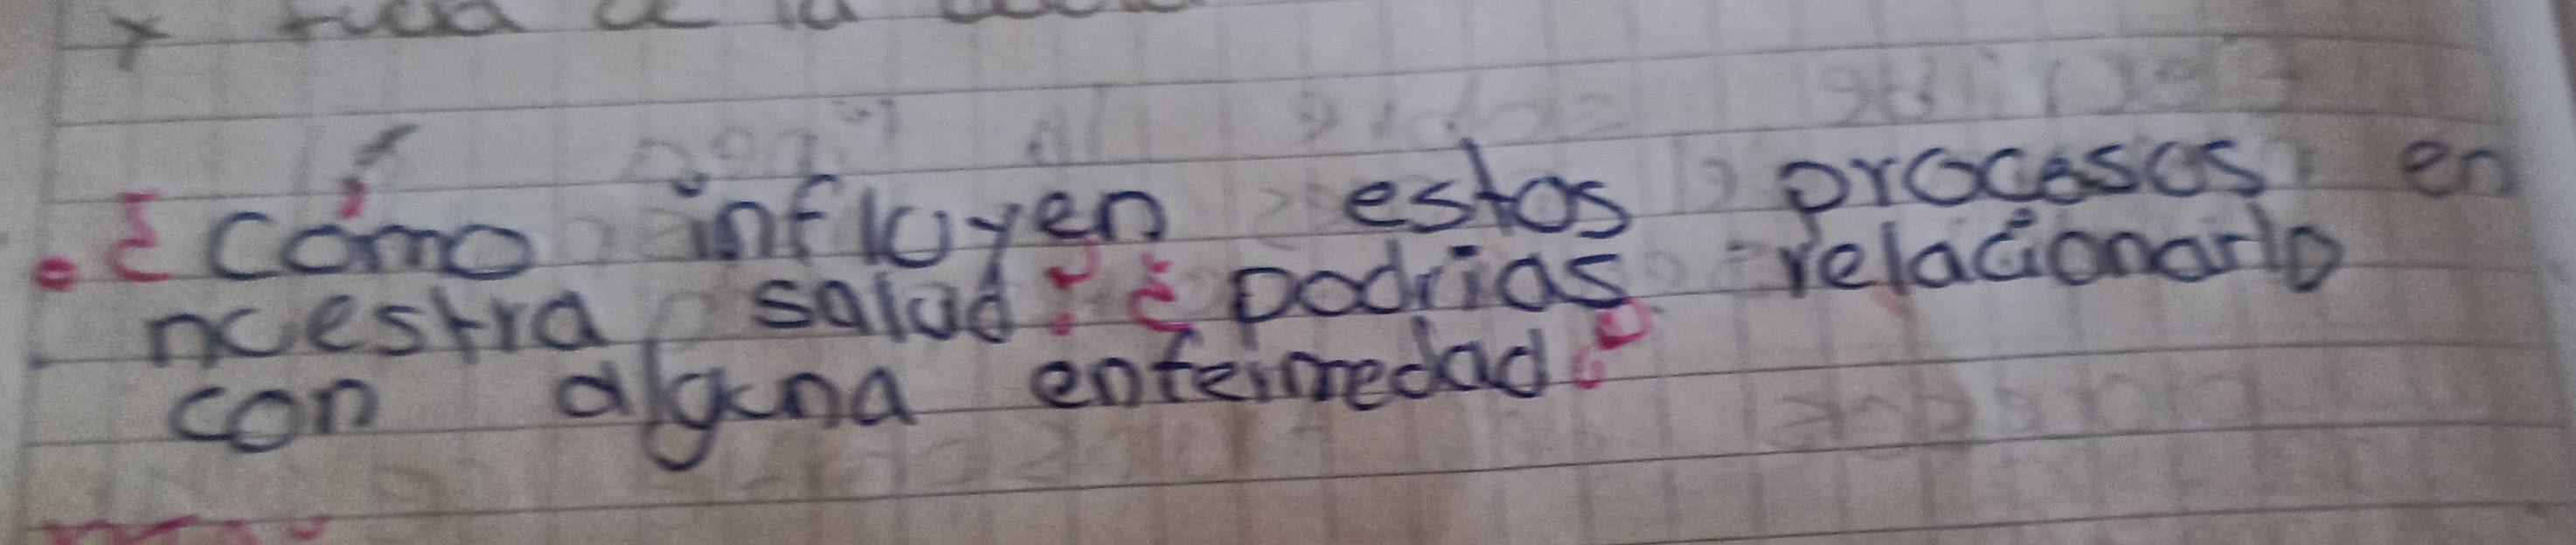 y fuera de la
• ¿Cómo influyen estos procesos en
nuestra salud? ¿podrias relacionarlo
con alguna enfermedad?